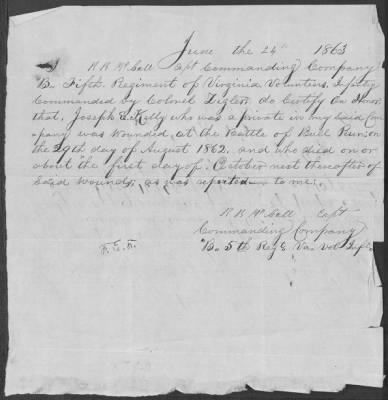 June the 24th 1863
I R R McCall Capt Commanding Company
B. Fifth Regiment of Virginia Volunteers, Infty
Commanded by Colonel Zigler, do Certify On Honor
that, Joseph E. Kelly who was a private in my Said Com
pany was wounded, at the Battle of Bull Run on
the 29th day of August 1862. and who died on or
about the first day of October next thereafter of
Said Wounds, as was reported to me.
R R McCall Capt
Commanding Company
B. 5th Regt Va. Vol Infty